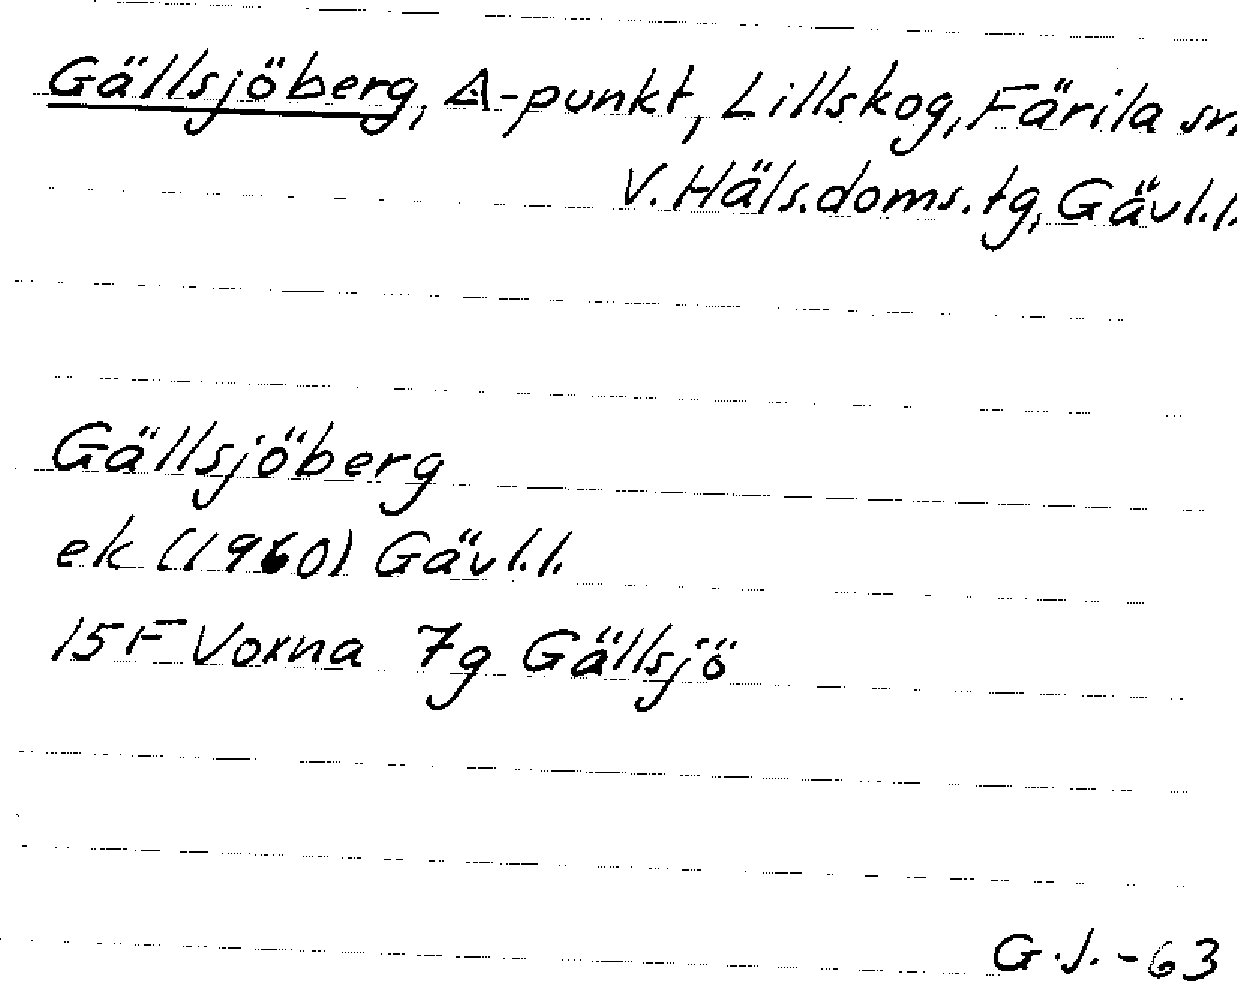 Gällsjöberg, Δ-punkt, Lillskog, Färila sn
V. Häls. doms. tg, Gävl.l.
Gällsjöberg
ek (1960) Gävl.l.
15 F Voxna 7g Gällsjö
G.J. -63